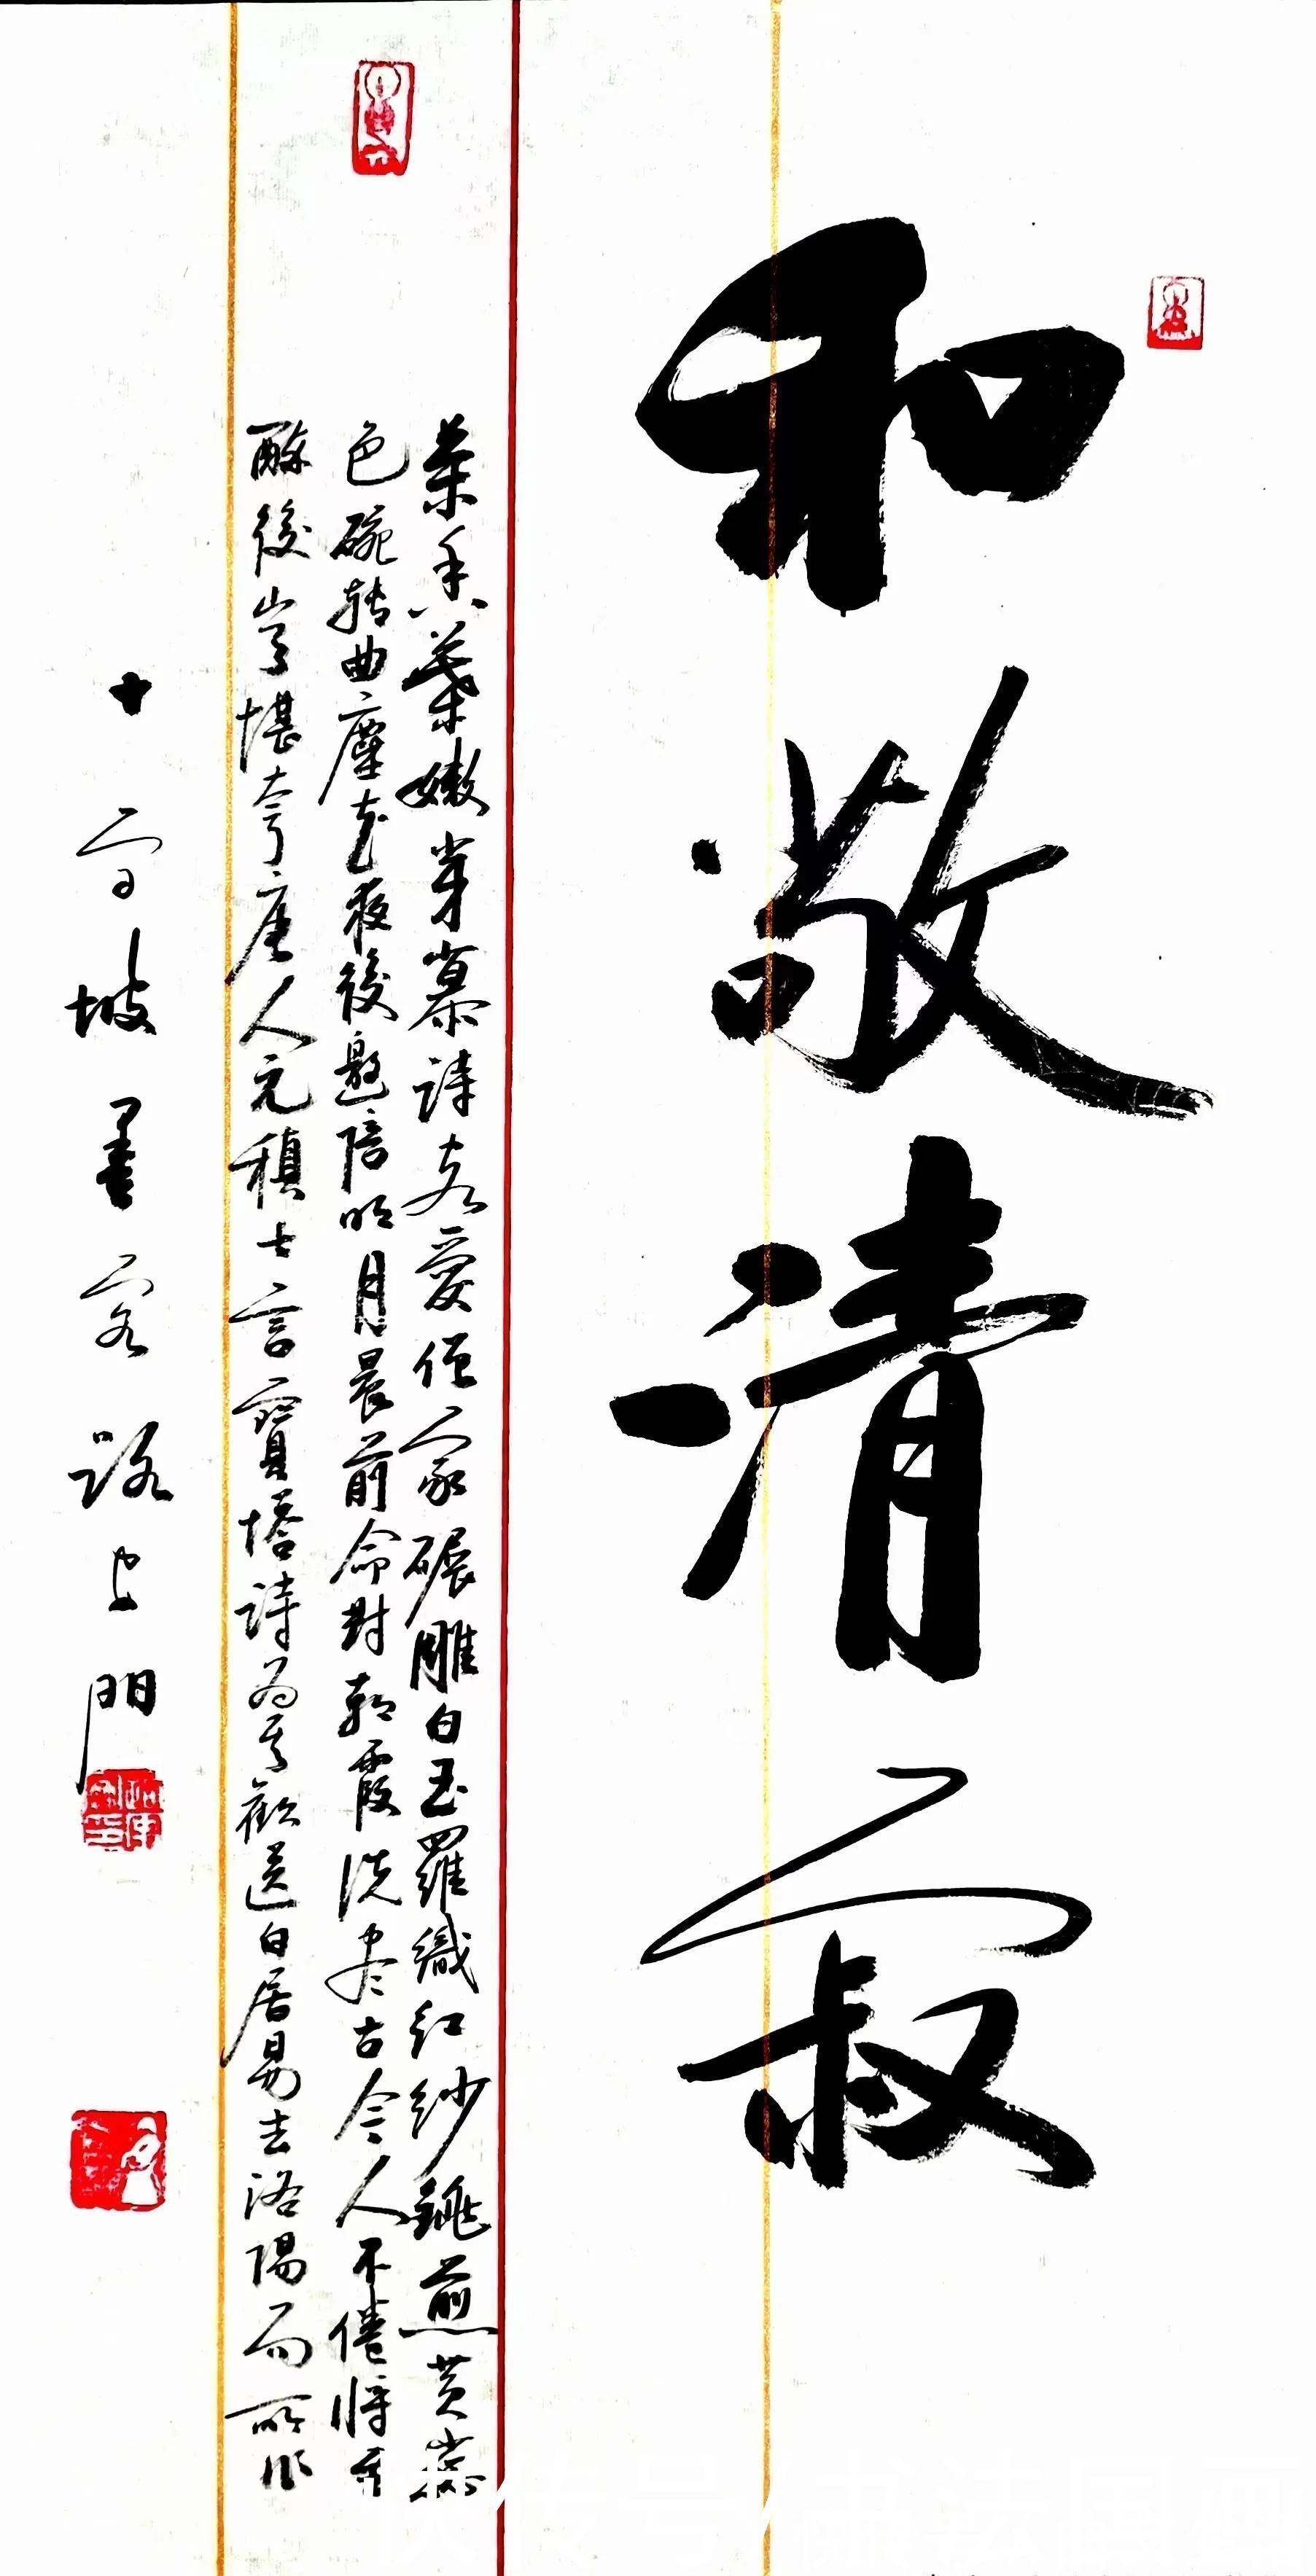 和敬清寂
茶香葉嫩芽慕詩客愛僧家碾雕白玉羅織红纱銚煎黄蕊
色碗转曲塵花夜後邀陪明月晨前命對朝霞洗尽古今人不倦將至
醉後豈堪夸唐人元稹七言寶塔詩为其歡送白居易去洛陽而所作
十字坡墨客路